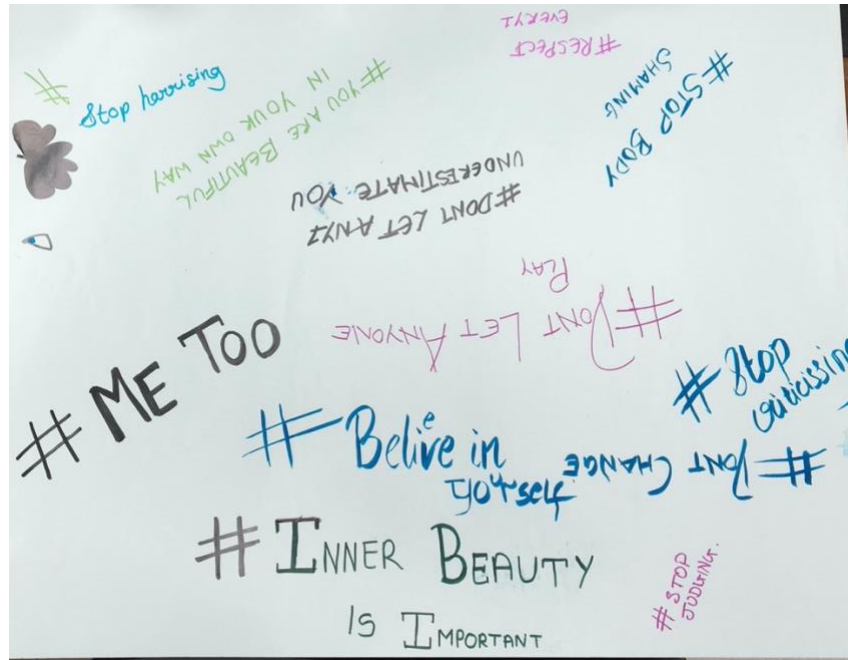 #RESPECT
EVERY1
# Stop harrising
#YOU ARE BEAUTIFUL
IN YOUR OWN WAY
#STOP BODY
SHAMING
#DONT LET ANY1
UNDERESTIMATE YOU
#DONT LET ANYONE
PLAY
# ME TOO
# Stop
criticissing
# Belive in
yourself
#DONT CHANGE
# INNER BEAUTY
IS IMPORTANT
# STOP
JUDGING.